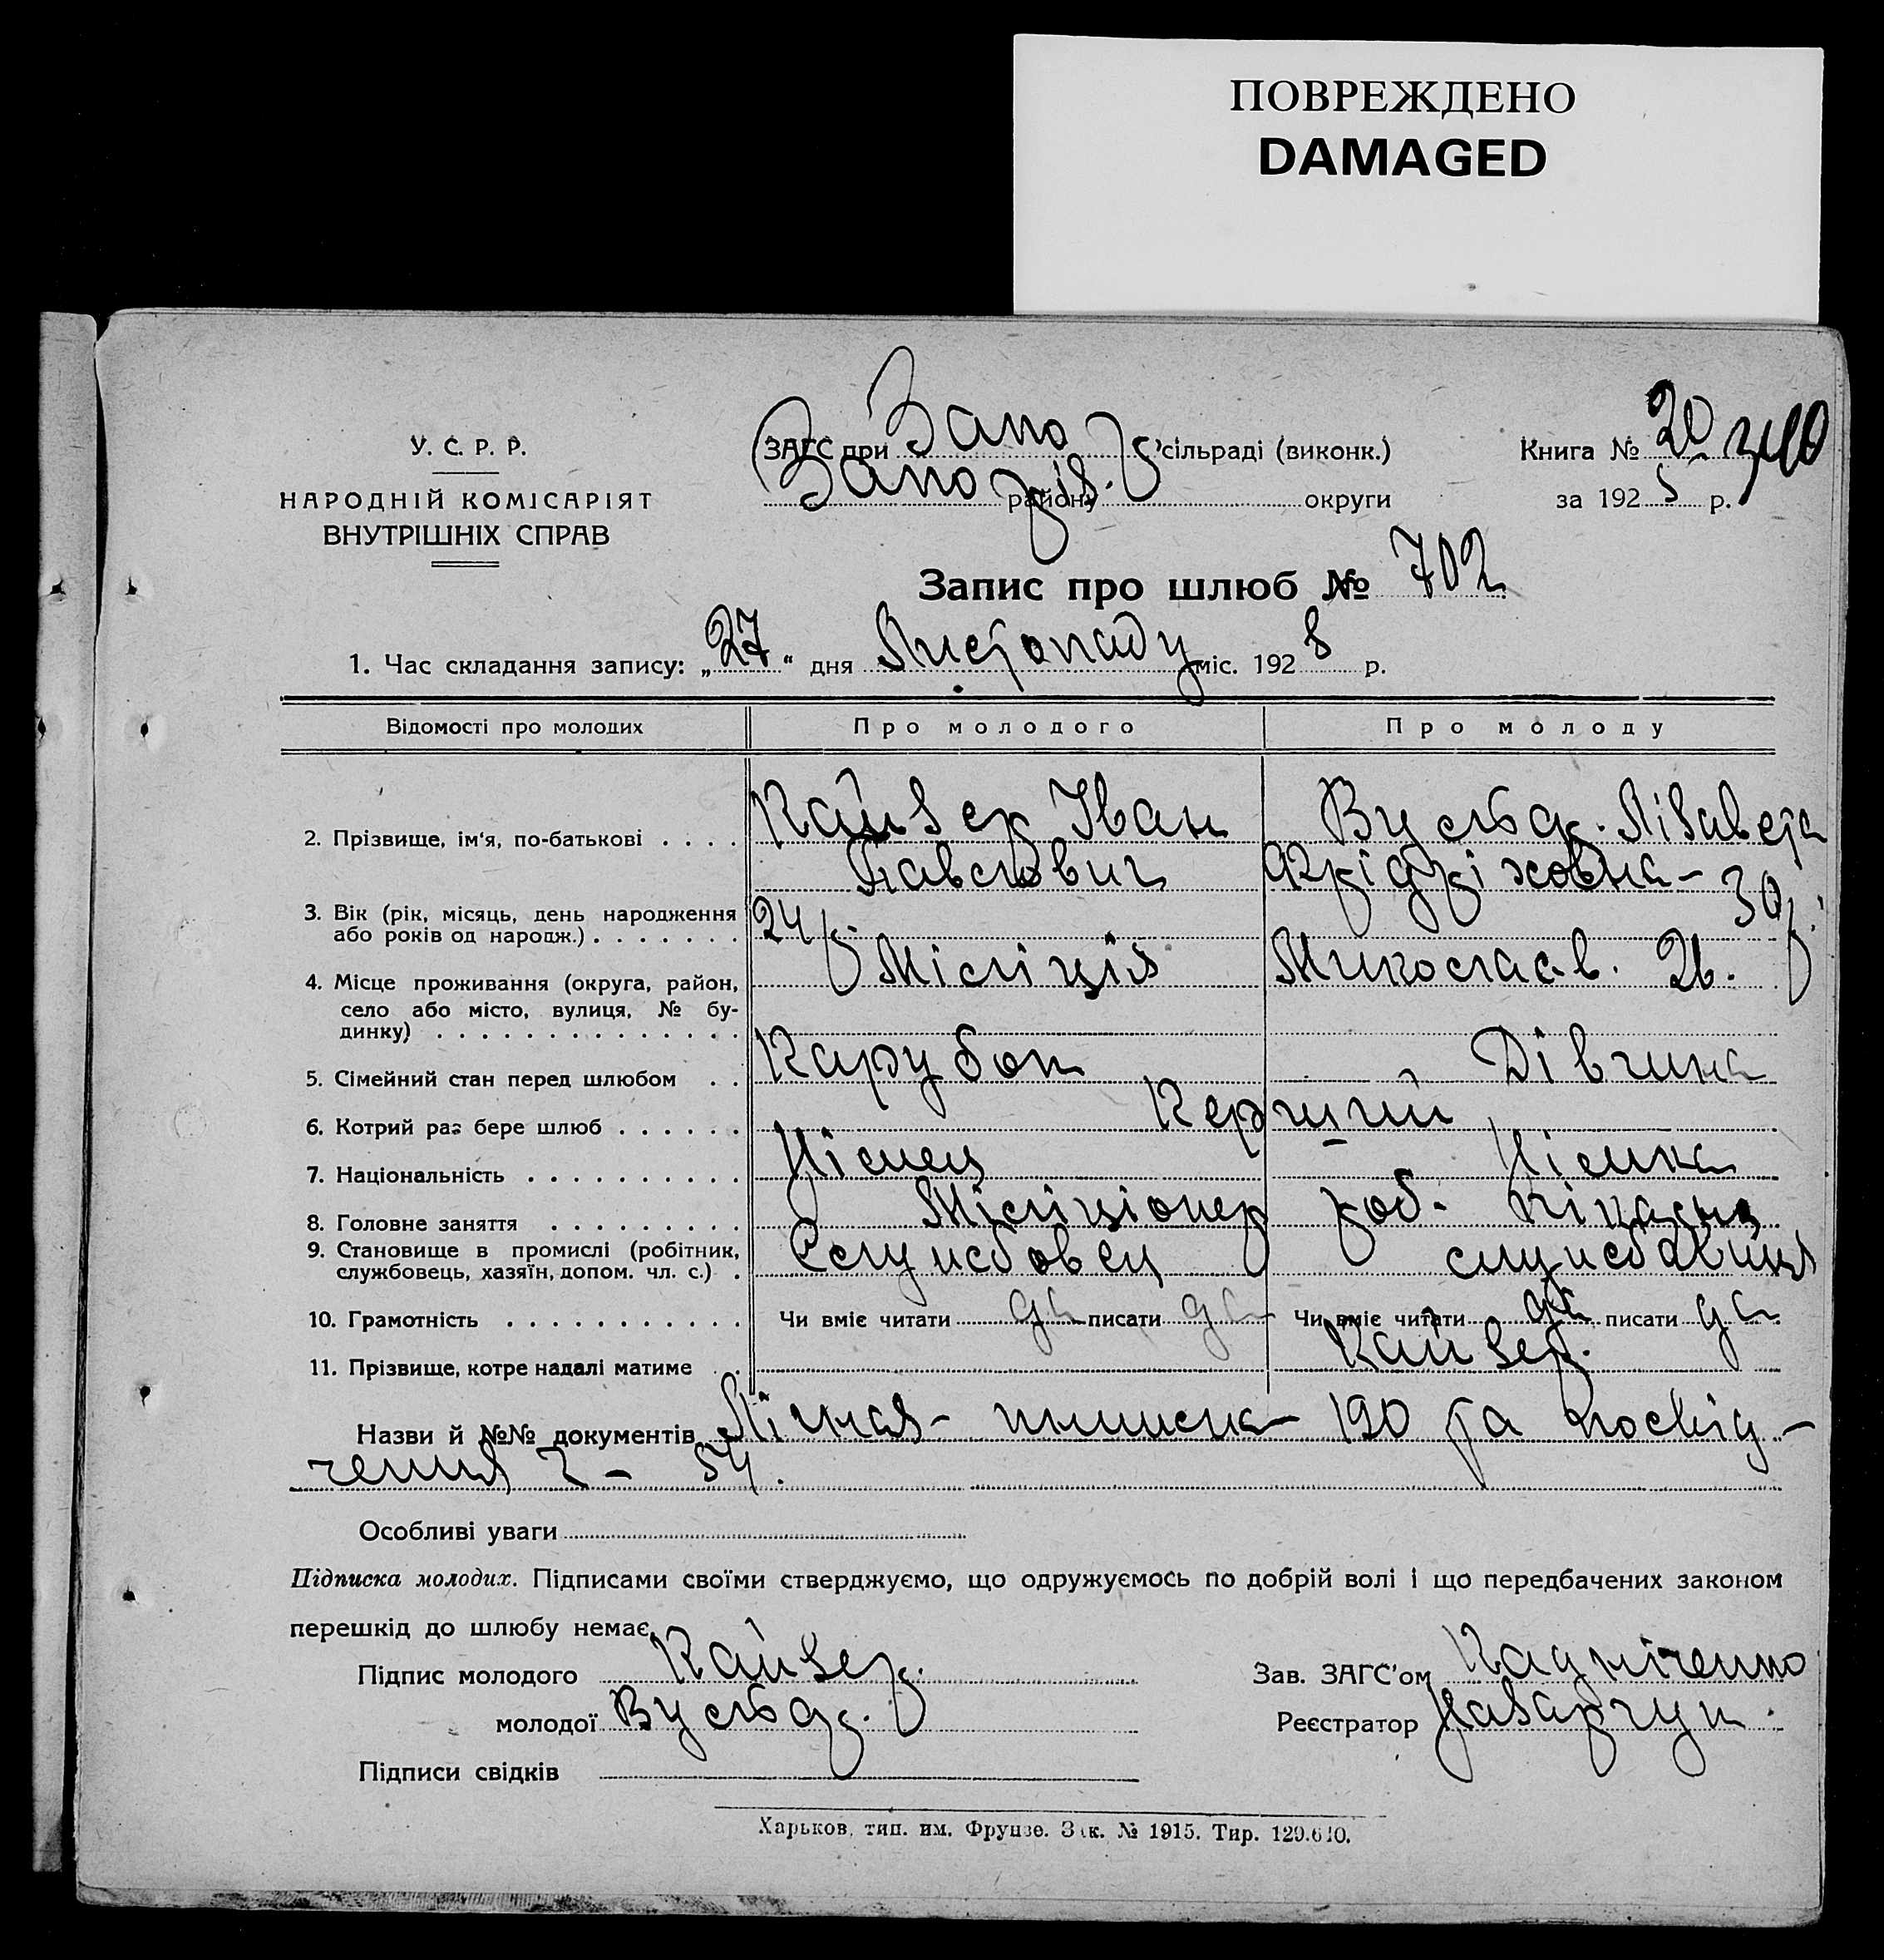 ПОВРЕЖДЕНО
DAMAGED
У. С. Р. Р.
НАРОДНІЙ КОМІСАРІЯТ
ВНУТРІШНІХ СПРАВ
ЗАГС при Запо 'сільраді (виконк.)
Запоріз. району округи
Книга № 20
за 192 р.
Запис про шлюб № 702
1. Час складання запису: „27“ дня Листопаду міс. 1928 р.
Відомості про молодих Про молодого Про молоду
2. Прізвище, ім'я, по-батькові . . . . Кайзер Іван Лізавета
Павлович
3. Вік (рік, місяць, день народження
або років од народж.) . . . . . . . 24 р. 30 р.
4. Місце проживання (округа, район, Міліція 26.
село або місто, вулиця, № бу-
динку) . . . . . . . . . . . . . .
5. Сімейний стан перед шлюбом . . Парубок Дівчина
6. Котрий раз бере шлюб . . . . . . Перший
7. Національність . . . . . . . . . . Німець Німка
8. Головне заняття . . . . . . . . . Міліціонер роб.
9. Становище в промислі (робітник,
службовець, хазяїн, допом. чл. с.) . Службовец службовиця
10. Грамотність . . . . . . . . . . . Чи вміє читати да писати да Чи вміє читати да писати да
11. Прізвище, котре надалі матиме . . Кайзер.
Назви й №№ документів Лічная книжка 190 та посвід-
чення 2 - 54.
Особливі уваги
Підписка молодих. Підписами своїми стверджуємо, що одружуємось по добрій волі і що передбачених законом
перешкід до шлюбу немає.
Підпис молодого Кайзер.
молодої
Зав. ЗАГС'ом
Реєстратор Назарчук.
Підписи свідків
Харьков, тип. им. Фрунзе. Зак. № 1915. Тир. 129.610.